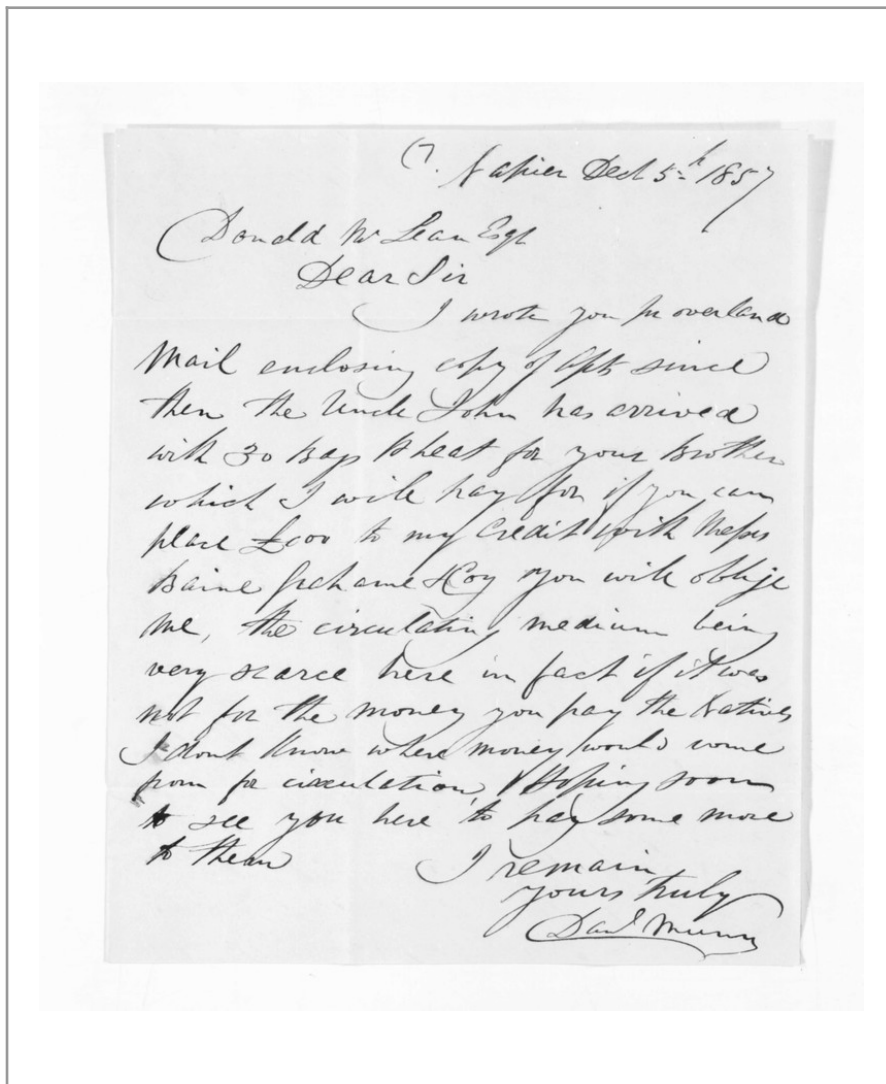 7. Napier Dect 5th 1857
Donald McLean Esqr
Dear Sir
I wrote you pr overland
Mail enclosing copy of since
then the Uncle John has arrived
with 30 Bags Wheat for your Brother
which I will pay for if you can
place to my credit with Messrs
Baine Grahame & Coy you will oblige
me, the circulating medium being
very scarce here in fact if it was
not for the money you pay the Natives
I dont know where money would come
from for circulation, Hoping soon
to see you here to pay some more
to them
I remain
yours truly
Danl Munn